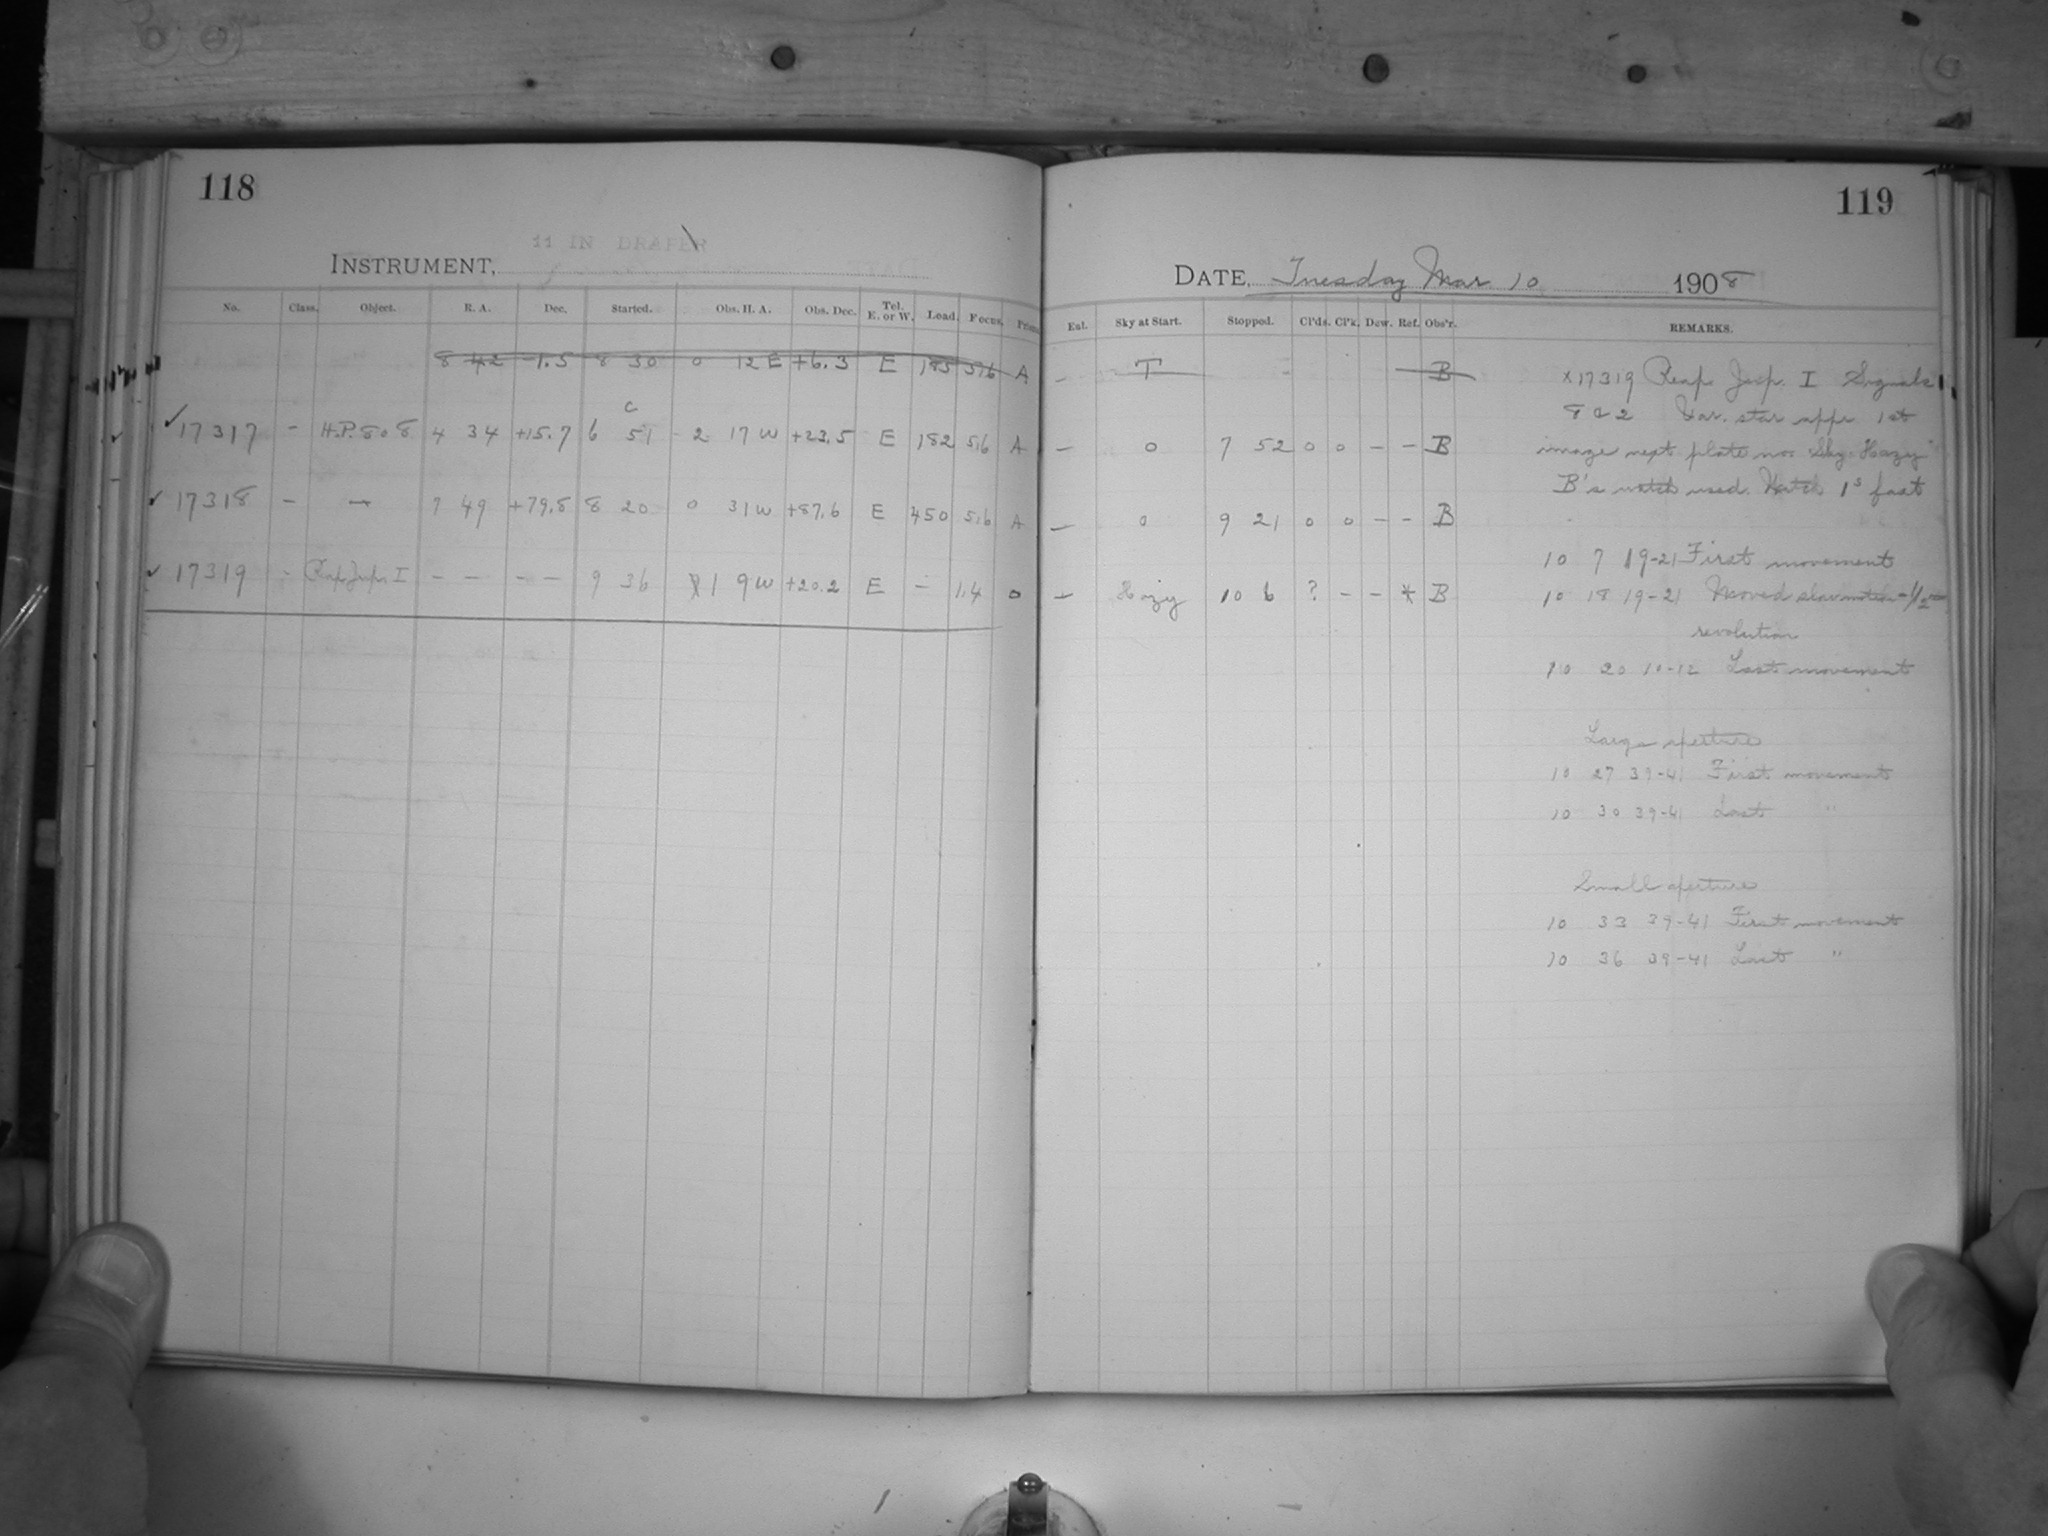 118
11 IN DRAPER
INSTRUMENT,
No. Class. Object. R. A. Dec. Started. Obs. H. A. Obs. Dec. Tel. E. or W. Load. Focus. Prism
8 42 -1.5 8 30 0 12 E +6.3 E 185 5.6 A
C
✓17317 - H.P. 808 4 34 +15.7 6 51 2 17 W +23.5 E 182 5.6 A
✓17318 - - 7 49 +79.8 8 20 0 31 W +87.6 E 450 5.6 A
✓17319 - Reap. Jup. I - - - - 9 36 1 9 W +20.2 E - 1.4 0
119
DATE, Tuesday Mar 10 1908
Ent. Sky at Start. Stopped. Cl'ds. Cl'k. Dew. Ref. Obs'r. REMARKS.
- T B
- 0 7 52 0 0 - - B
- 0 9 21 0 0 - - B
- Hazy 10 6 ? - - * B
x17319 Reap. Jup. I Signals
Var. star appr. 1st
image next plate no. Sky Hazy
B's watch used. Watch 1s fast
10 7 19-21 First movement
10 18 19-21 Moved slow motion - 1/2
revolution
10 20 10-12 Last movement
Large aperture
10 27 39-41 First movement
10 30 39-41 Last "
Small aperture
10 33 39-41 First movement
10 36 39-41 Last "